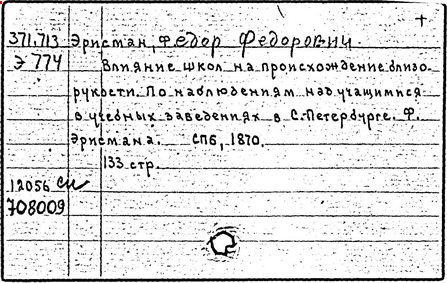 +
371.713 Эрисман, Федор Федорович.
Э 774 Влияние школ на происхождение близо-
рукости. По наблюдениям над учащимися
в учебных заведениях в С.-Петербурге. Ф.
Эрисмана. СПб, 1870.
133 стр.
12056 си
708009